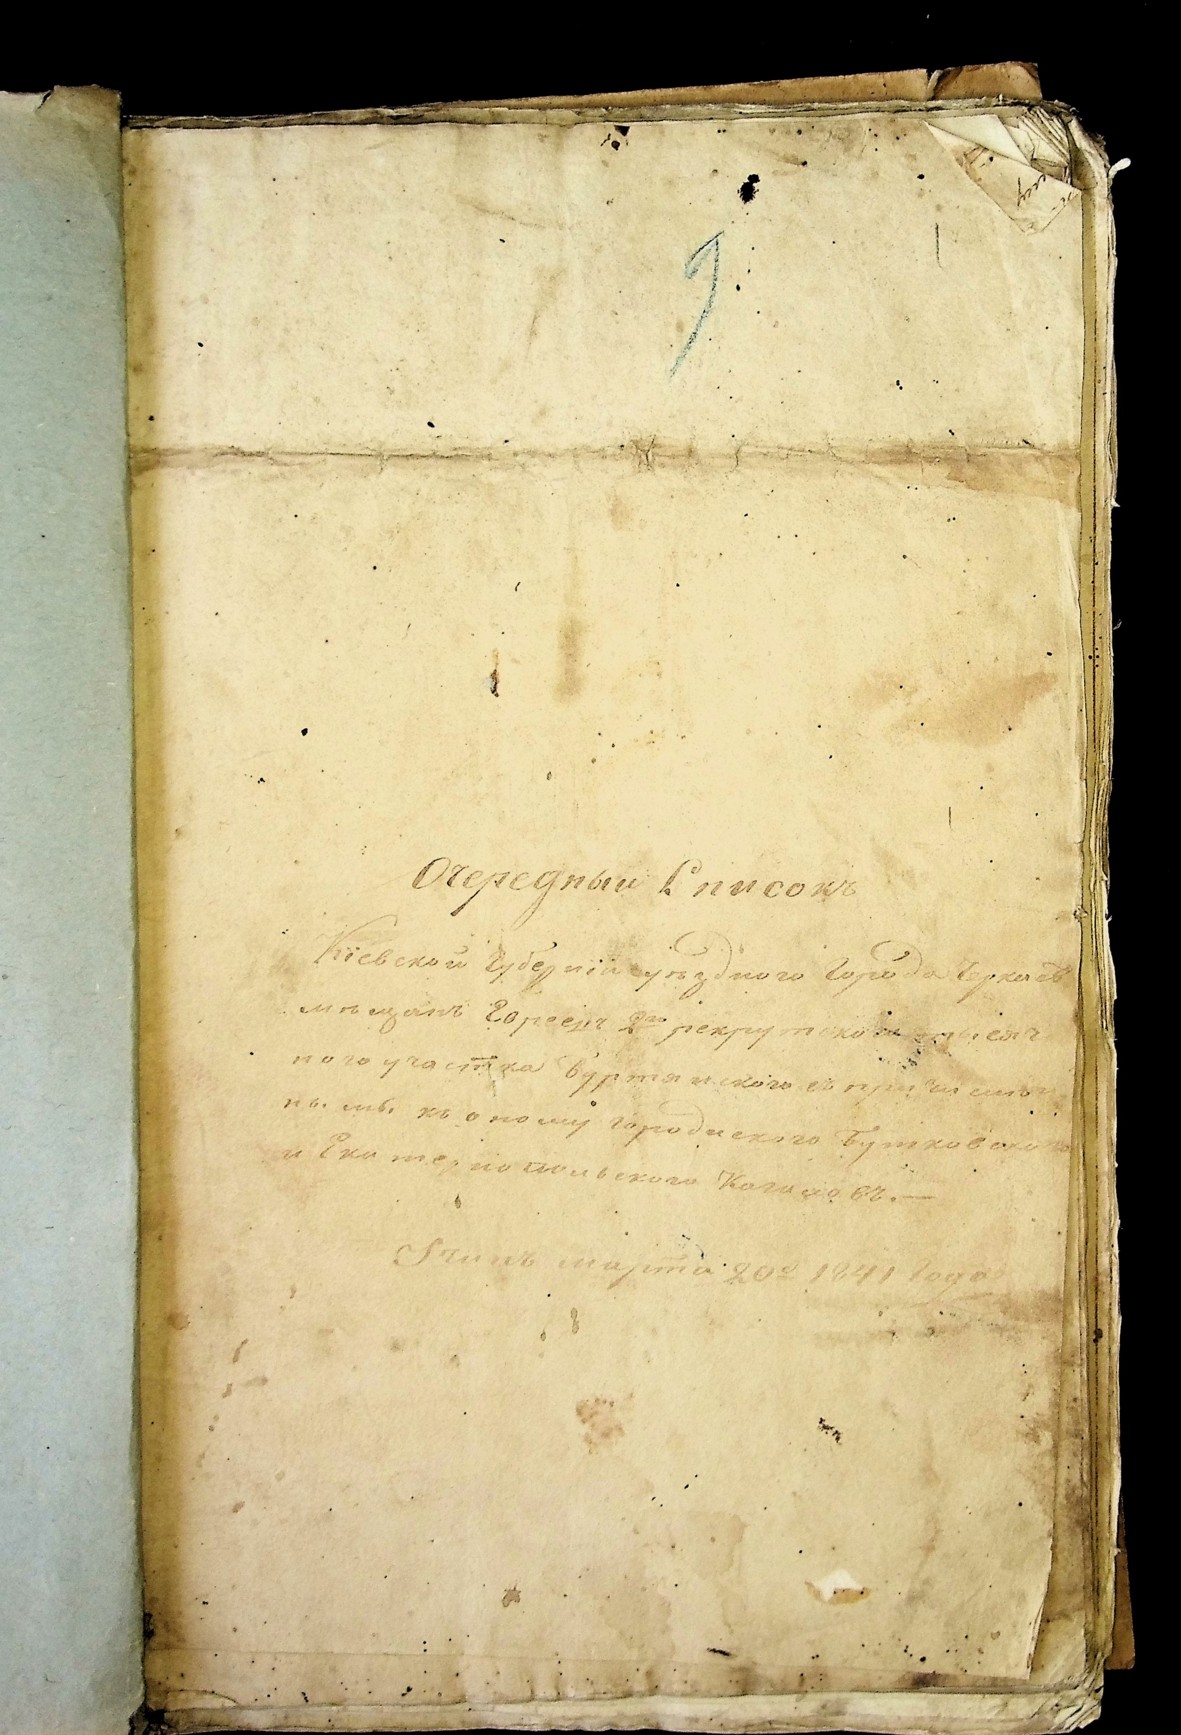 9
1
Очередный Списокъ
Кіевской Губерніи уѣзднаго Города Черкасъ
мѣщанъ Евреевъ 2го рекрутского тысяч
ного участка Буртянского съ причислен
ны.ми. къ оному Городиского Бутковского
и Екатеринопольского Кагаловъ. —
марта 20д 1841 Года